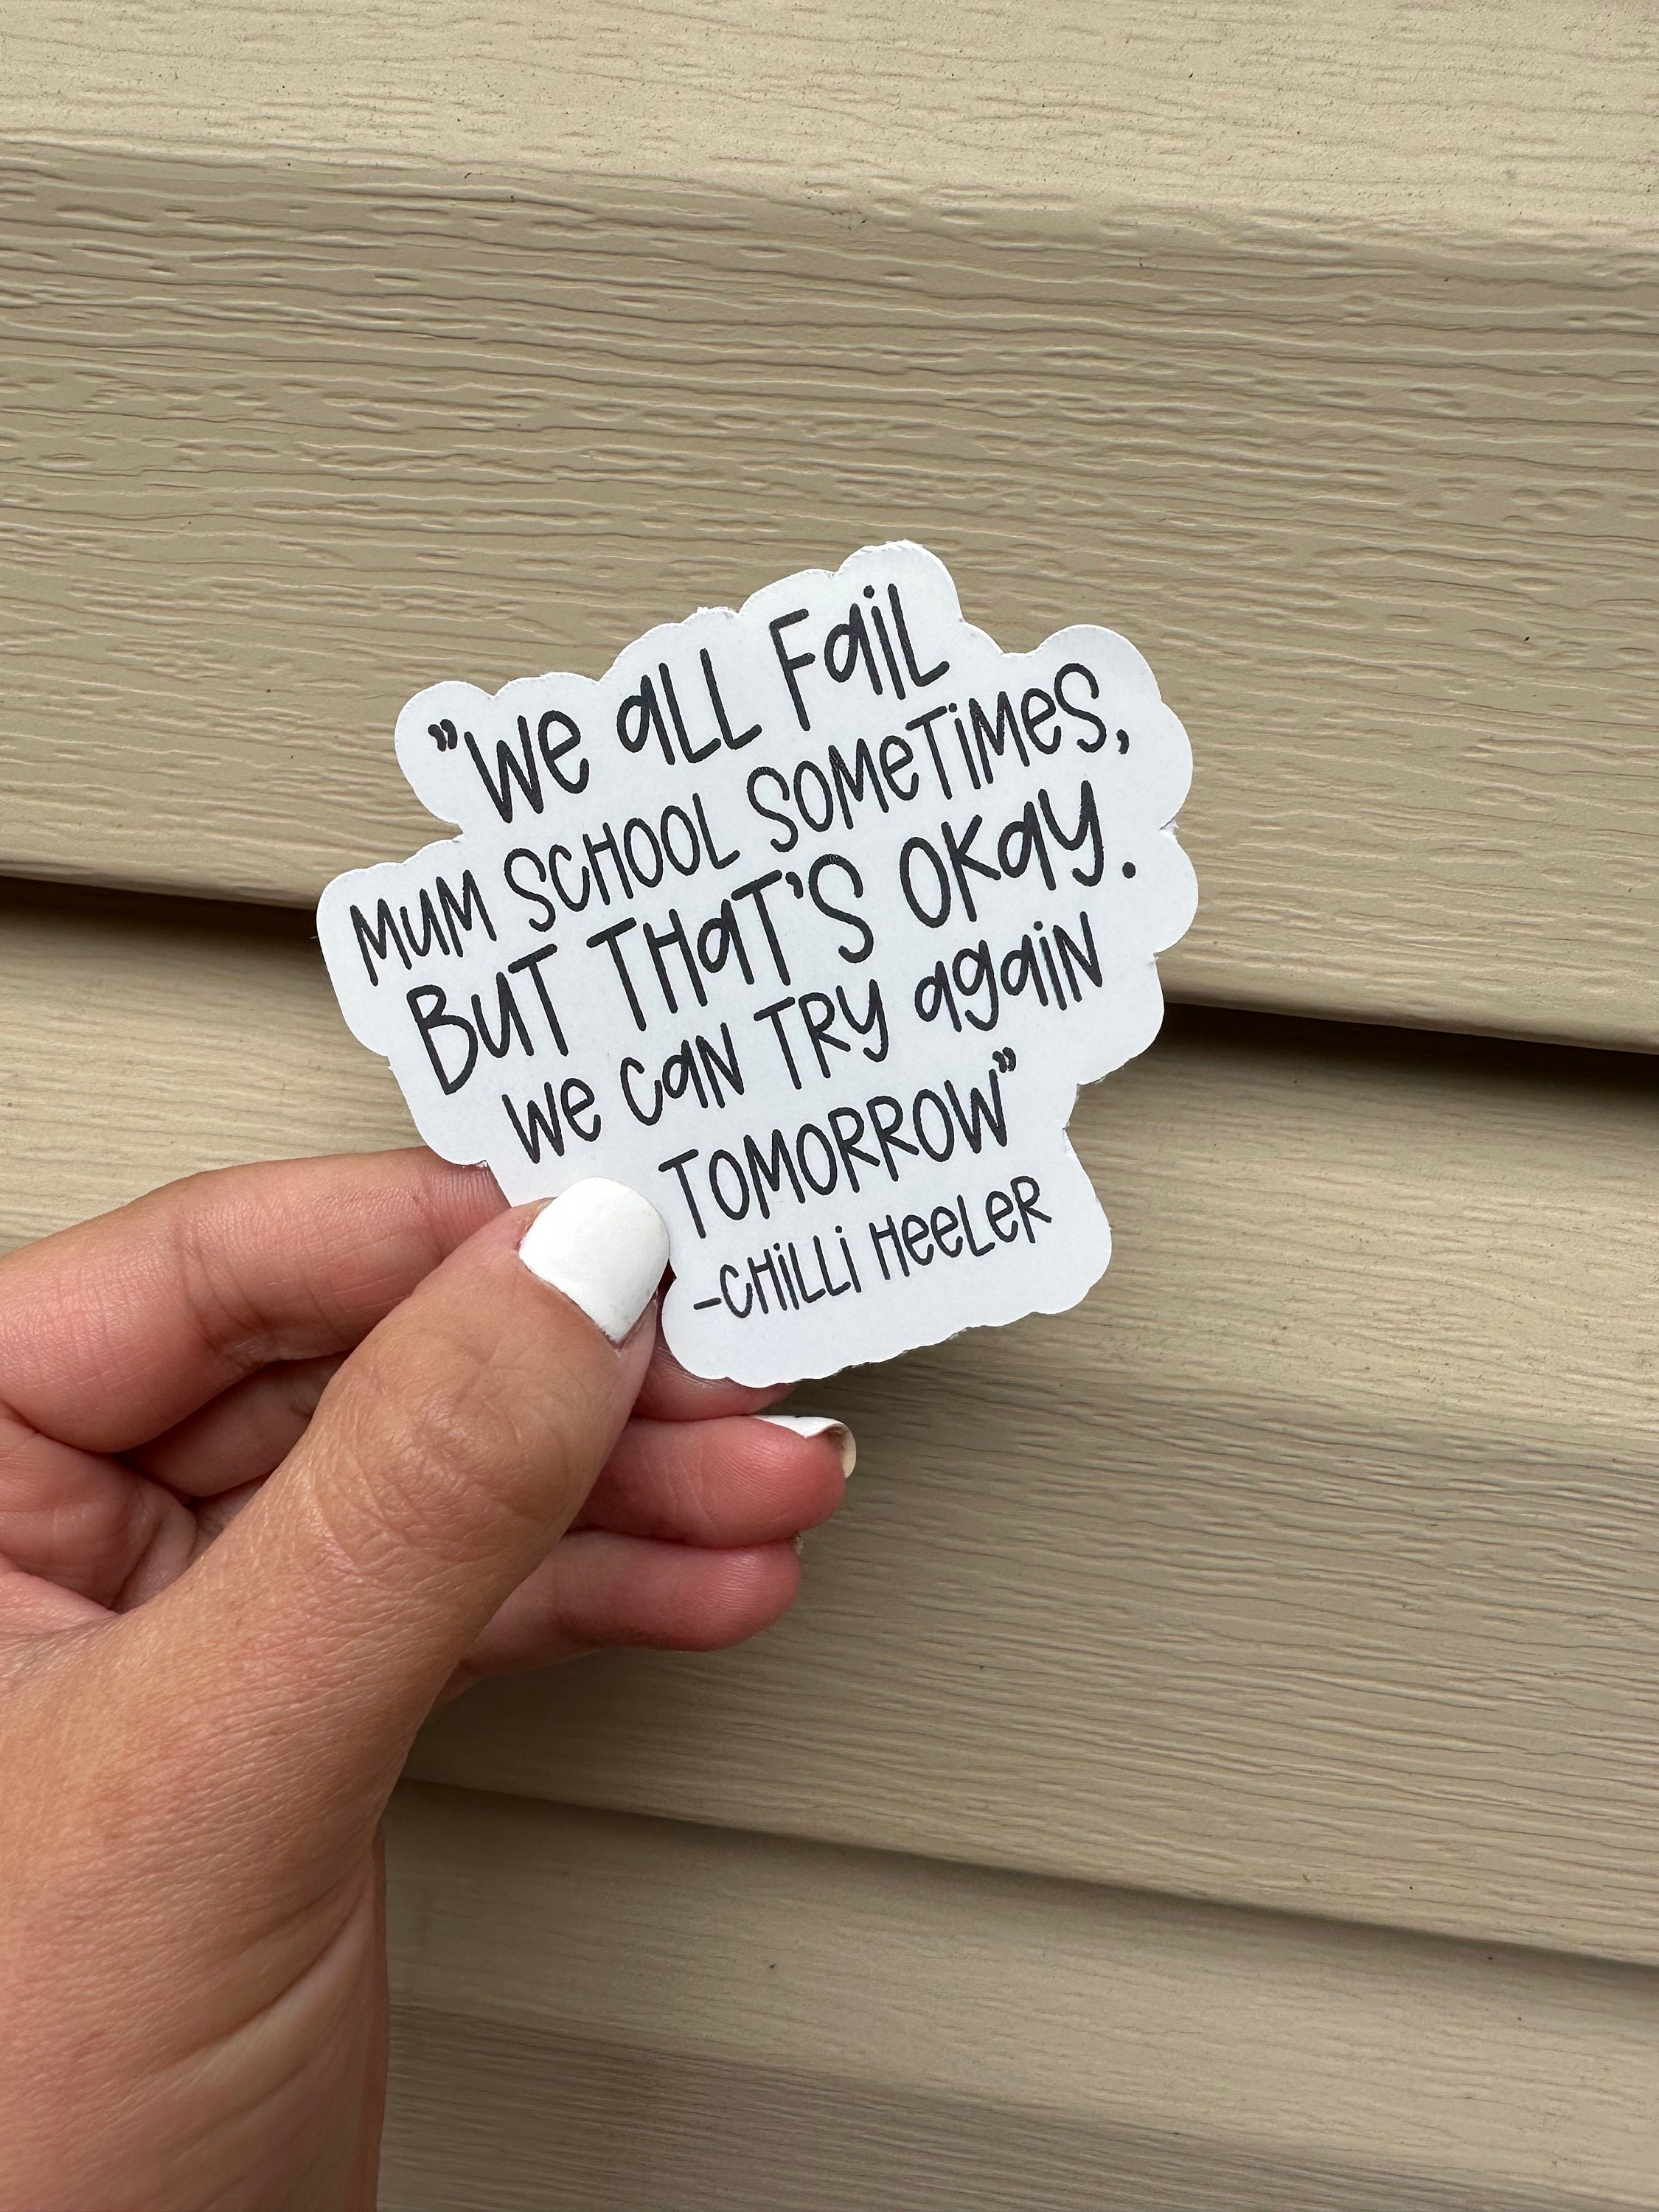 "We all Fail
MUM SCHOOL SOMETIMES,
BUT THAT'S OKAY.
We can TRY again
TOMORROW"
-CHILLI HEELER